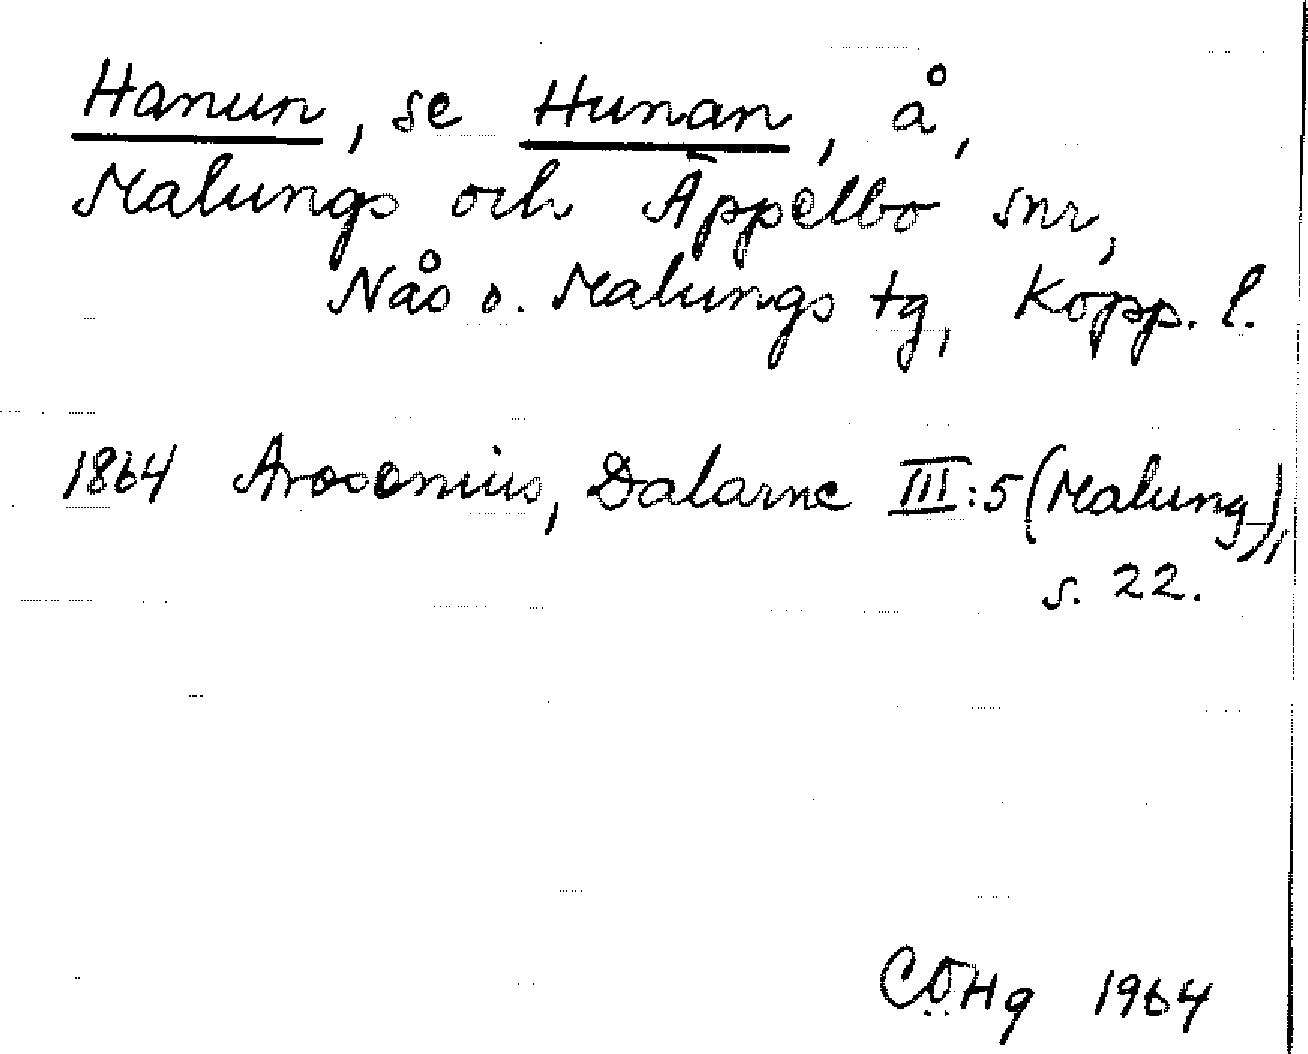 Hanun, se Hunan, å,
Malungs och Äppelbo snr,
Nås o. Malungs tg, Kopp. l.
1864 Arosenius, Dalarne III:5 (Malung),
s. 22.
CÖHg 1964